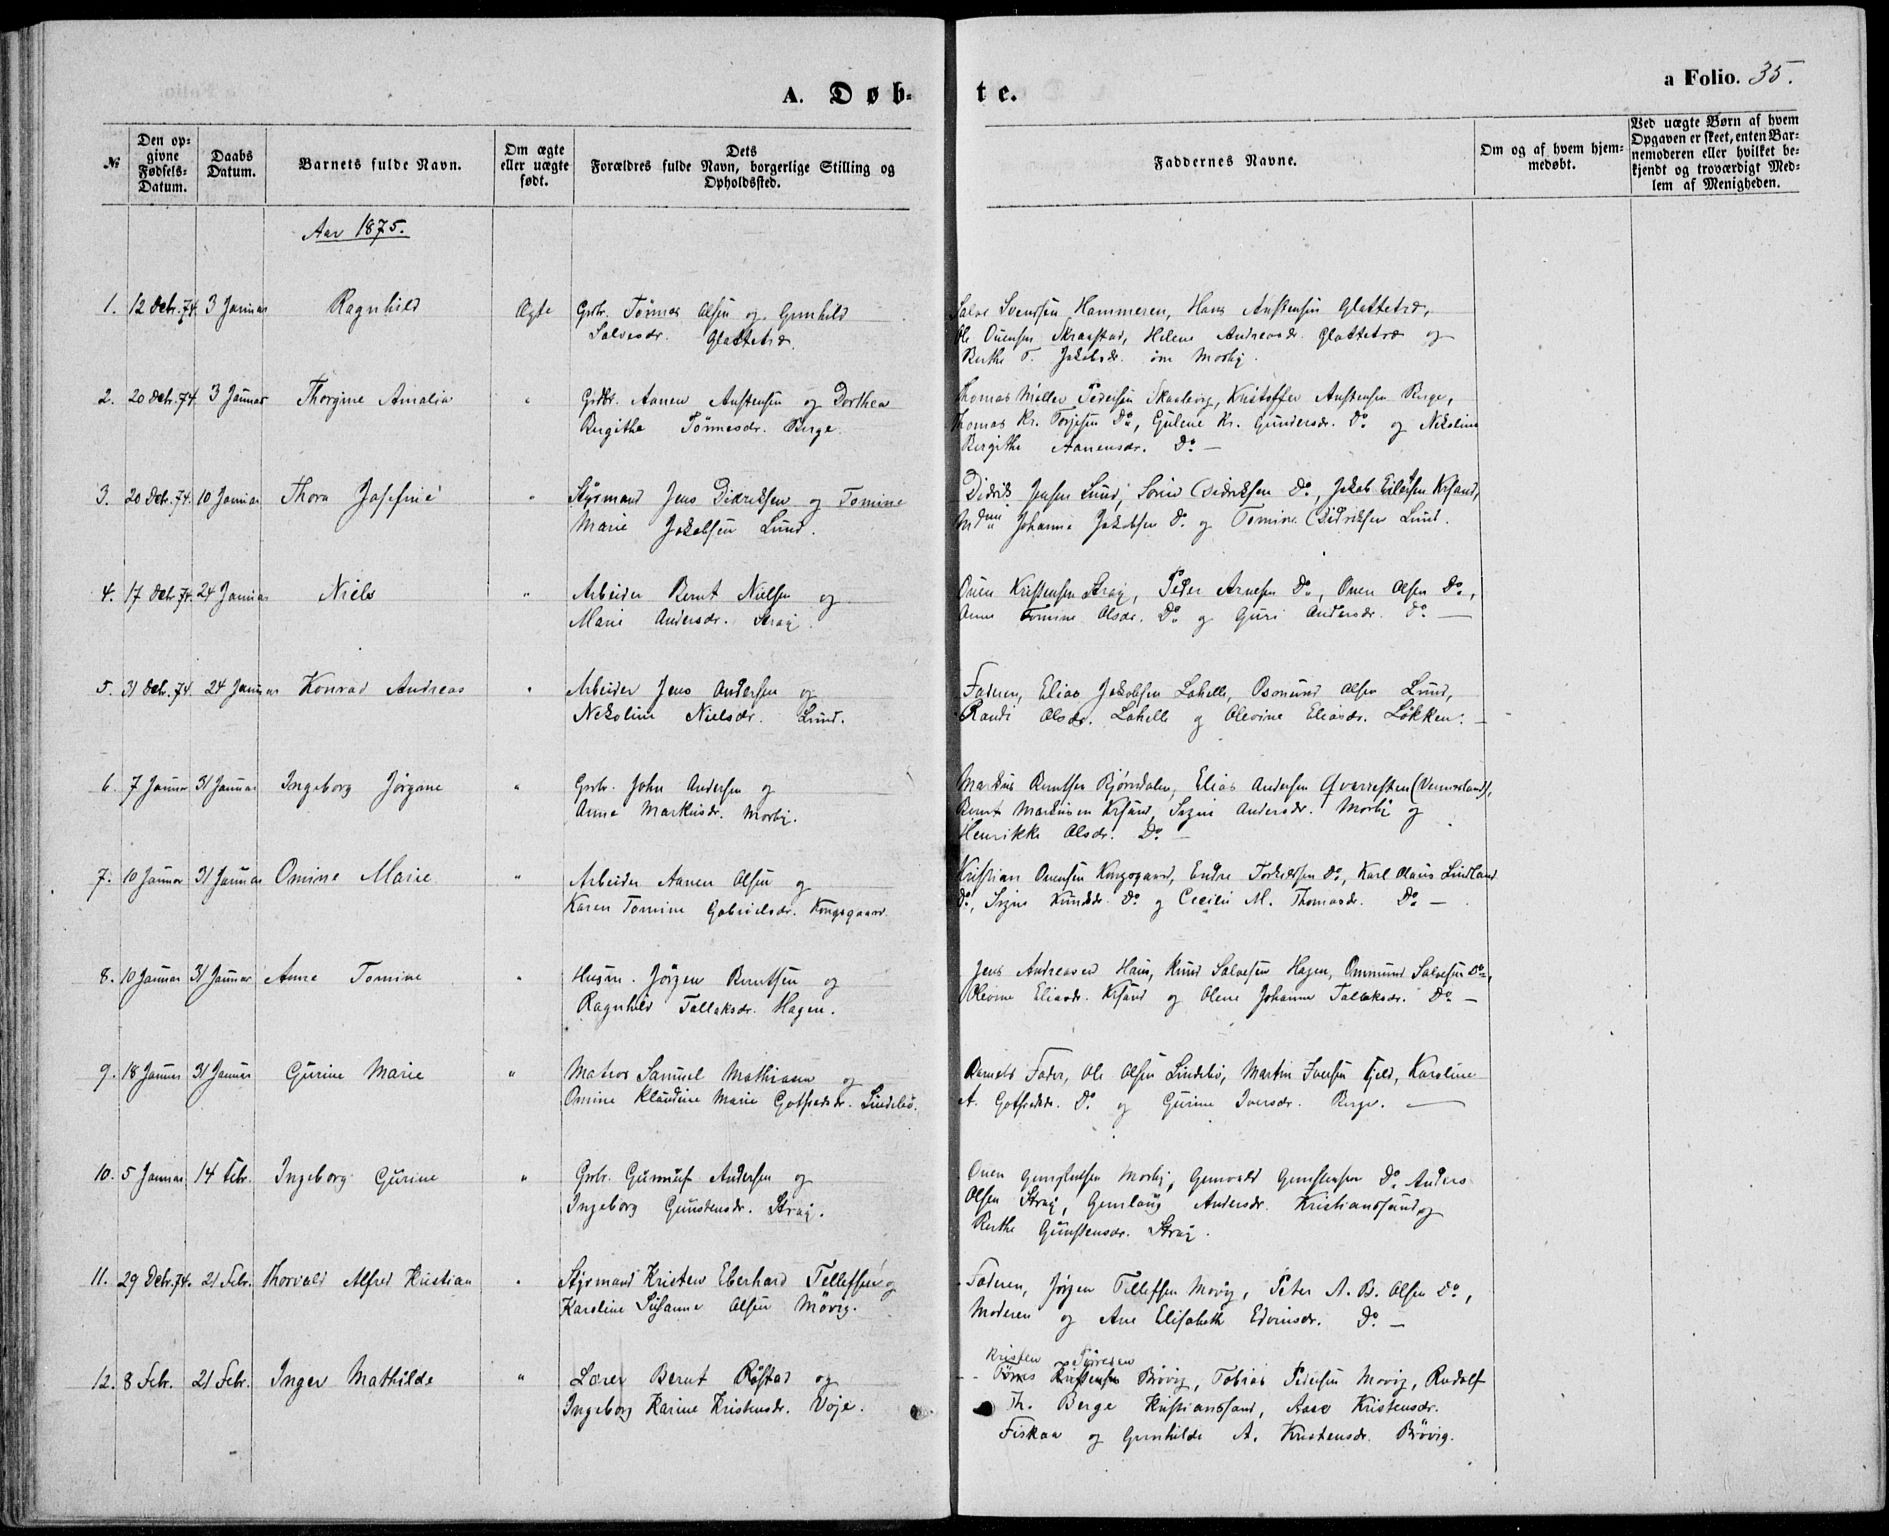 A. Døb-
te.
a Folio. 35.
№
Den op-
givne
Fødsels-
Datum.
Daabs
Datum.
Barnets fulde Navn.
Om ægte
eller uægte
født.
Dets
Forældres fulde Navn, borgerlige Stilling og
Opholdssted.
Faddernes Navne.
Om og af hvem hjem-
medøbt.
Ved uægte Børn af hvem
Opgaven er skeet, enten Bar-
nemoderen eller hvilket be-
kjendt og troværdigt Med-
lem af Menigheden.
Aar 1875.
1. 12 Debr. 74. 3 Januar Ragnhild Ægte Grbr. Tönnes Olsen og Gunhild
Salvesdr. Glattetræ.
Salve Svensen Hammeren, Hans Anstensen Glattetræ,
Ole Ouensen Skraastad, Helene Andreasdr. Glattetræ og
Berthe T. Jakobsdr. Mosby.
2. 20 Debr. 74. 3 Januar Thorgine Amalia " Grdbr. Aanen Anstensen og Dorthea
Birgithe Tönnesdr. Berge.
Thomas Møller Pedersen Skaalevig, Kristoffer Anstensen Berge,
Thomas Kr. Torjesen Do, Gulene Kr. Gundersdr. Do og Nikoline
Bergithe Aanensdr. Do —
3. 20 Debr. 74. 10 Januar Thora Josefine " Styrmand Jens Didriksen og Tomine
Marie Jakobsen Lund.
Didrik Jensen Lund, Sören Didriksen Do, Jakob Eilertsen Krsand,
Johanne Jakobsen Do. og Tomine Didriksen Lund.
4. 17 Debr. 74. 24 Januar Niels " Arbeider Bernt Nielsen og
Marie Andersdr. Strai.
Ouen Kristensen Strai, Peder Arnesen Do, Ouen Olsen Do,
Anne Tomine Olsdr. Do og Guri Andersdr. Do —
5. 31 Debr. 74. 24 Januar Konrad Andreas " Arbeider Jens Andersen og
Nikoline Nielsdr. Lund.
Faderen, Elias Jakobsen Lahelle, Osmund Olsen Lund,
Randi Olsdr. Lahelle og Olevine Eliasdr. Løkken. —
6. 7 Januar 31 Januar Ingeborg Jörgine " Grbr. John Andersen og
Anne Markusdr. Mosby.
Markus Berntsen Bjørndalen, Elias Andersen Qvarsten (Vennesland),
Bernt Markussen Krsand, Signe Andersdr. Mosby og
Henrikke Olsdr. Do —
7. 10 Januar 31 Januar Omine Marie " Arbeider Aanen Olsen og
Karen Tomine Gabrielsdr. Kongsgaard.
Kristian Ouensen Kongsgaard, Endre Torkildsen Do, Karl Olaus Lindland
Do, Signe Knudsdr. Do og Cecilie M. Thomasdr. Do —
8. 10 Januar 31 Januar Anne Tomine " Husm. Jörgen Berntsen og
Ragnhild Tallaksdr. Hagen.
Jens Andreassen Ham, Knud Salvesen Hagen, Ommund Salvesen Do,
Olevine Eliasdr. Krsand og Olene Johanne Tallaksdr. Do —
9. 18 Januar 31 Januar Gurine Marie " Matros Samuel Mathiasen og
Omine Klaudine Marie Gotfredsdr. Lindebø.
Barnets Fader, Ole Olsen Lindebø, Martin Iversen Fjeld, Karoline
A. Gotfredsdr. Do. og Gurine Iversdr. Berge. —
10. 5 Januar 14 Febr. Ingeborg Gurine " Grbr. Gunnuf Andersen og
Ingeborg Gunstensdr. Strai.
Ouen Gunstensen Mosby, Gunvald Gunstensen Do. Anders
Olsen Strai, Gunlaug Andersdr. Kristianssand og
Berthe Gunstensdr. Strai.
11. 29 Debr. 74. 21 Febr. Thorvald Alfred Kristian " Styrmand Kristen Eberhard Tellefsen og
Karoline Susanne Olsen Møvig.
Faderen, Jörgen Tellefsen Movig, Peter A. B. Olsen Do,
Moderen og Ane Elisabeth Edvinsdr. Do. —
12. 8 Febr. 21 Febr. Inger Mathilde " Lærer Bernt Røstad og
Ingeborg Karine Kristensdr. Voje.
Kristen Sörensen
Kristensen Brövig, Tobias Pedersen Movig, Rudolf
Th. Berge Kristianssand, Aase Kristensdr.
Fiskaa og Gunhilde A. Kristensdr. Brövig.